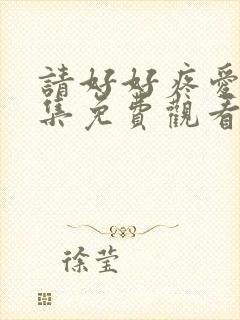 請好好疼愛
集免費觀看
徐莹